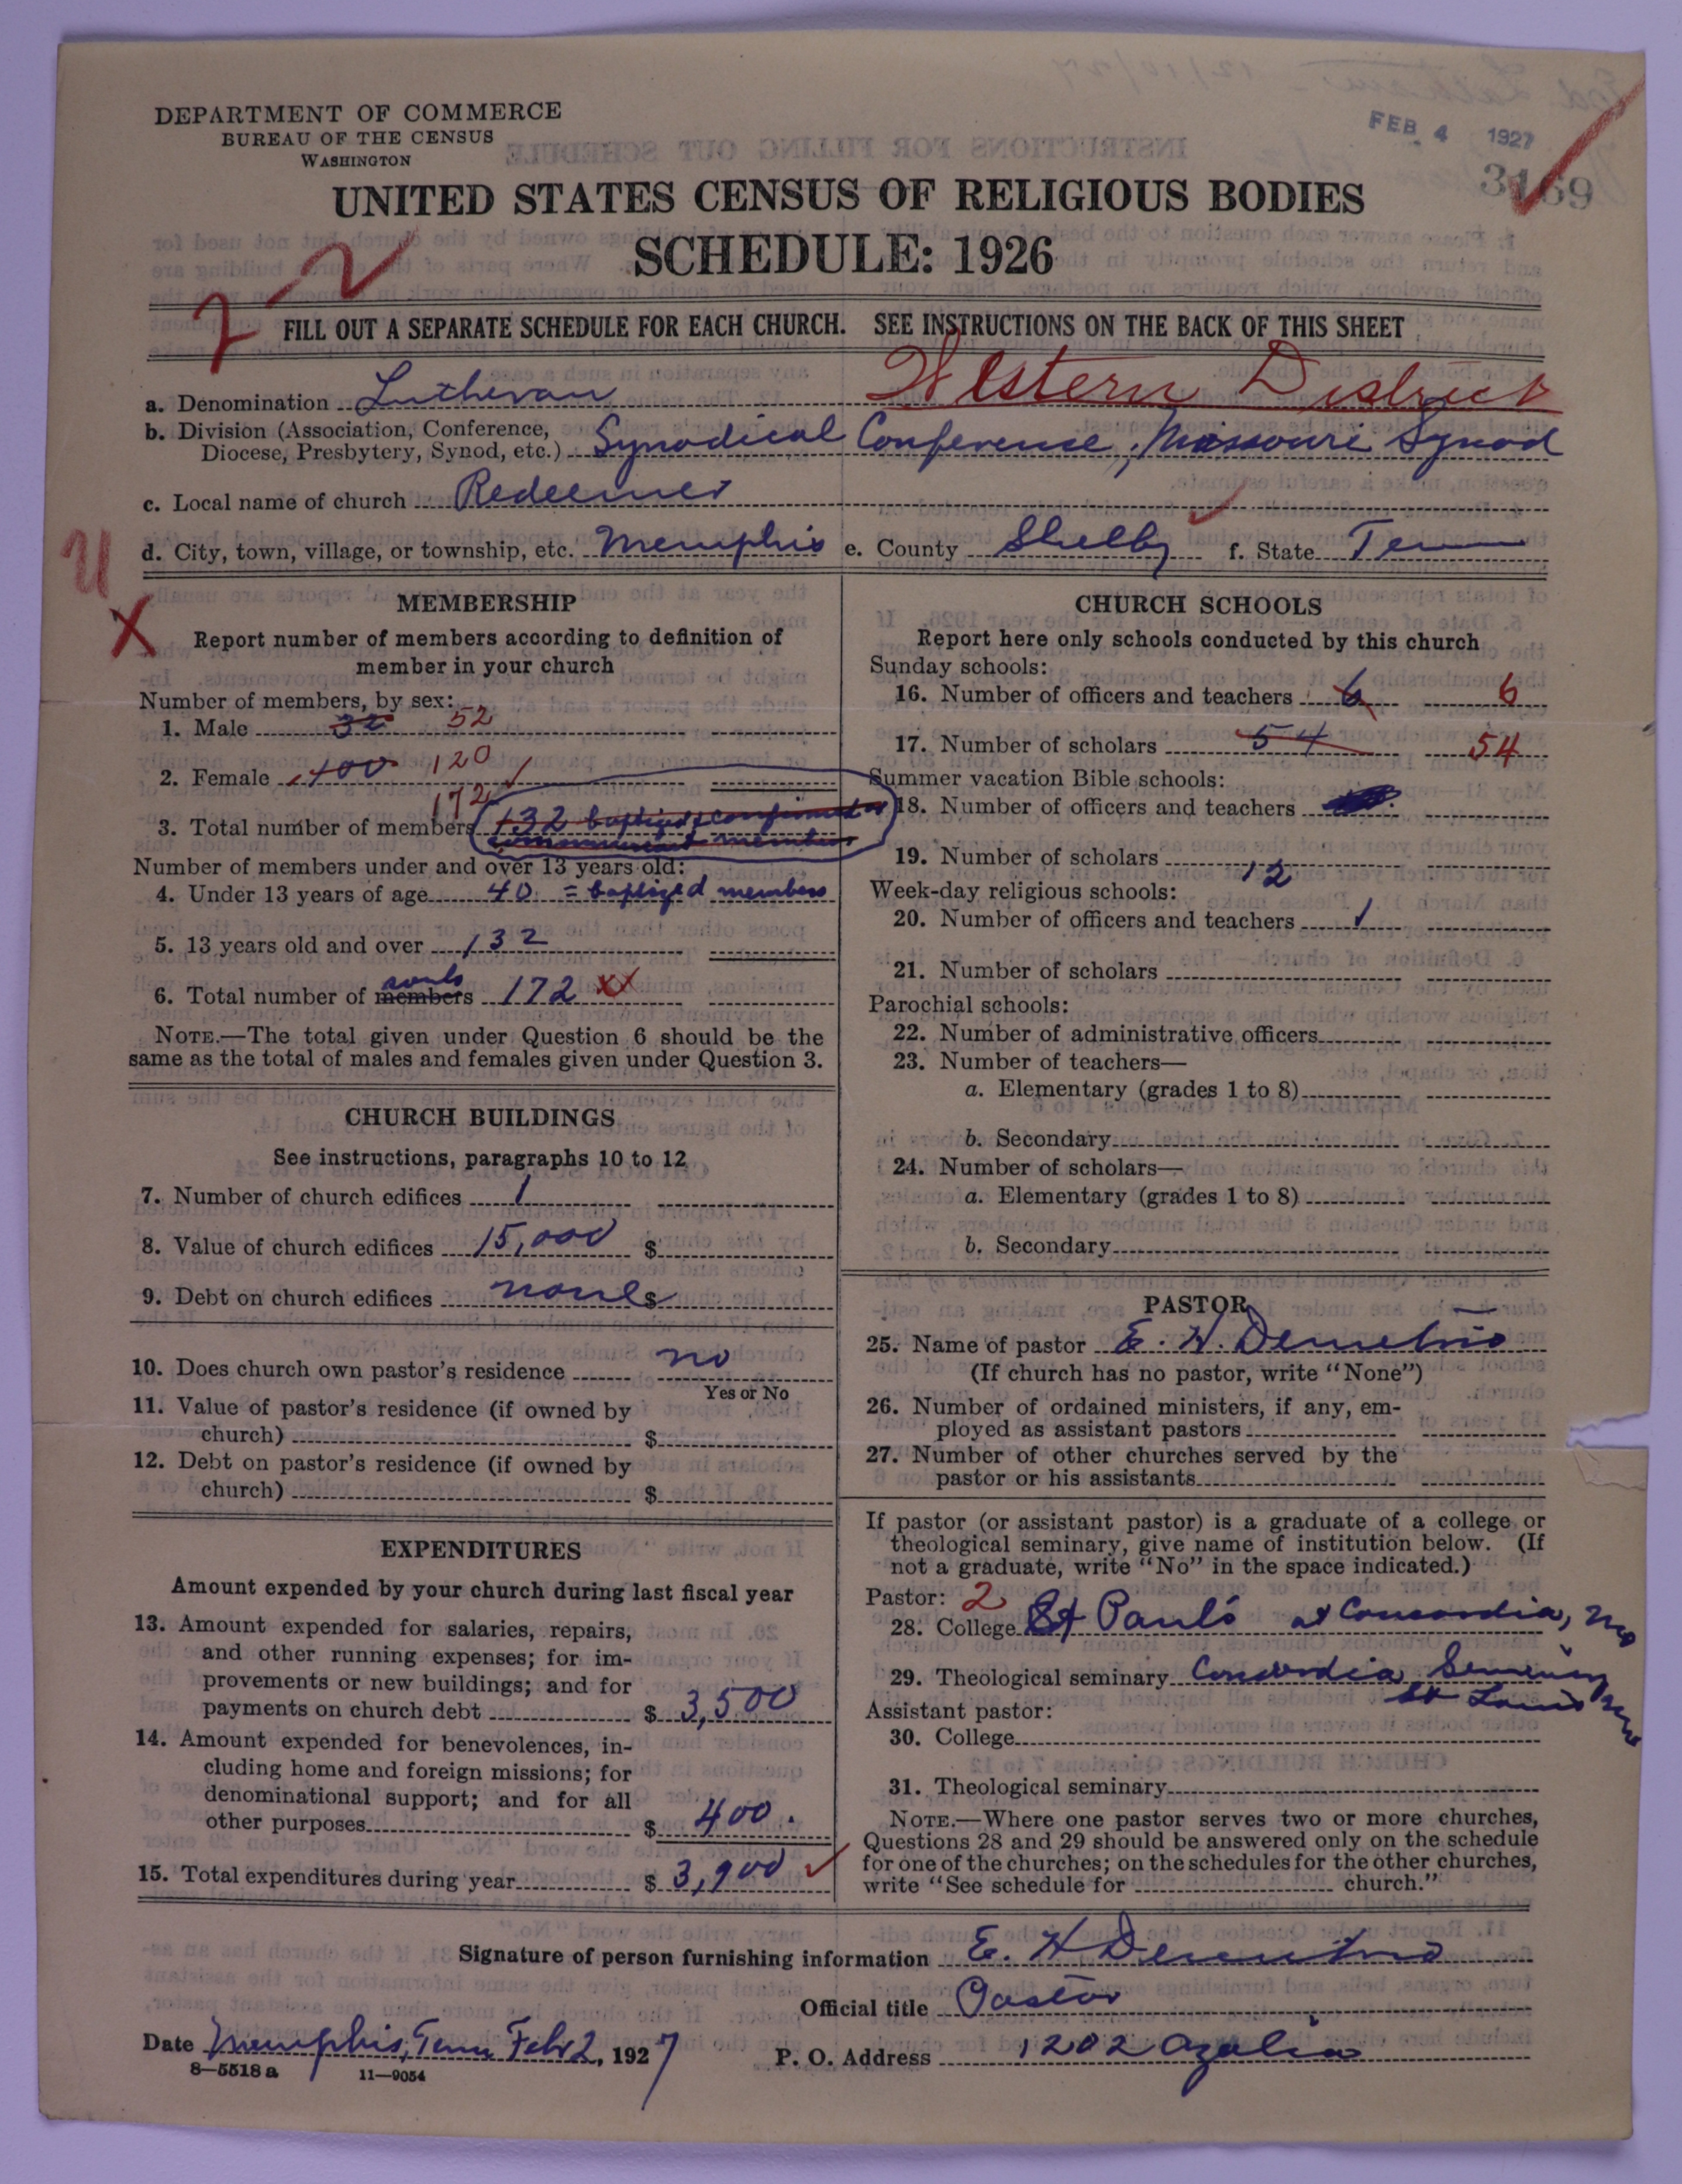 DEPARTMENT OF COMMERCE
BUREAU OF THE CENSUS
WASHINGTON
FEB 4 1927
3169
UNITED STATES CENSUS OF RELIGIOUS BODIES
SCHEDULE: 1926
2 2
FILL OUT A SEPARATE SCHEDULE FOR EACH CHURCH. SEE INSTRUCTIONS ON THE BACK OF THIS SHEET
Western District
a. Denomination Lutheran
b. Division (Association, Conference,
Diocese, Presbytery, Synod, etc.) Synodical Conference, Missouri Synod
c. Local name of church Redeemer
d. City, town, village, or township, etc. Memphis e. County Shelby f. State Tenn
MEMBERSHIP
X
Report number of members according to definition of
member in your church
Number of members, by sex:
1. Male 32 52
2. Female 100 120
172
3. Total number of members 132 baptized & confirmed or
communicant members
Number of members under and over 13 years old:
4. Under 13 years of age 40 = baptized members
5. 13 years old and over 132
6. Total number of members souls 172
NOTE.—The total given under Question 6 should be the
same as the total of males and females given under Question 3.
CHURCH BUILDINGS
See instructions, paragraphs 10 to 12
7. Number of church edifices 1
8. Value of church edifices 15,000 $
9. Debt on church edifices none $
10. Does church own pastor's residence no
Yes or No
11. Value of pastor's residence (if owned by
church) $
12. Debt on pastor's residence (if owned by
church) $
EXPENDITURES
Amount expended by your church during last fiscal year
13. Amount expended for salaries, repairs,
and other running expenses; for im-
provements or new buildings; and for
payments on church debt $ 3,500
14. Amount expended for benevolences, in-
cluding home and foreign missions; for
denominational support; and for all
other purposes $ 400.
15. Total expenditures during year $ 3,900
CHURCH SCHOOLS
Report here only schools conducted by this church
Sunday schools:
16. Number of officers and teachers 6 6
17. Number of scholars 54 54
Summer vacation Bible schools:
18. Number of officers and teachers
19. Number of scholars
12
Week-day religious schools:
20. Number of officers and teachers 1
21. Number of scholars
Parochial schools:
22. Number of administrative officers
23. Number of teachers—
a. Elementary (grades 1 to 8)
b. Secondary
24. Number of scholars—
a. Elementary (grades 1 to 8)
b. Secondary
PASTOR
25. Name of pastor E. H. Demetrio
(If church has no pastor, write "None")
26. Number of ordained ministers, if any, em-
ployed as assistant pastors
27. Number of other churches served by the
pastor or his assistants
If pastor (or assistant pastor) is a graduate of a college or
theological seminary, give name of institution below. (If
not a graduate, write "No" in the space indicated.)
Pastor: 2
28. College St Paul's at Concordia, Mo
29. Theological seminary Concordia Seminary
St Louis Mo
Assistant pastor:
30. College
31. Theological seminary
NOTE.—Where one pastor serves two or more churches,
Questions 28 and 29 should be answered only on the schedule
for one of the churches; on the schedules for the other churches,
write "See schedule for church."
Signature of person furnishing information E. H Demetrio
Official title Pastor
Date Memphis, Tenn Feb 2, 1927
P. O. Address 1202 Azalia
8—5518 a 11—9054